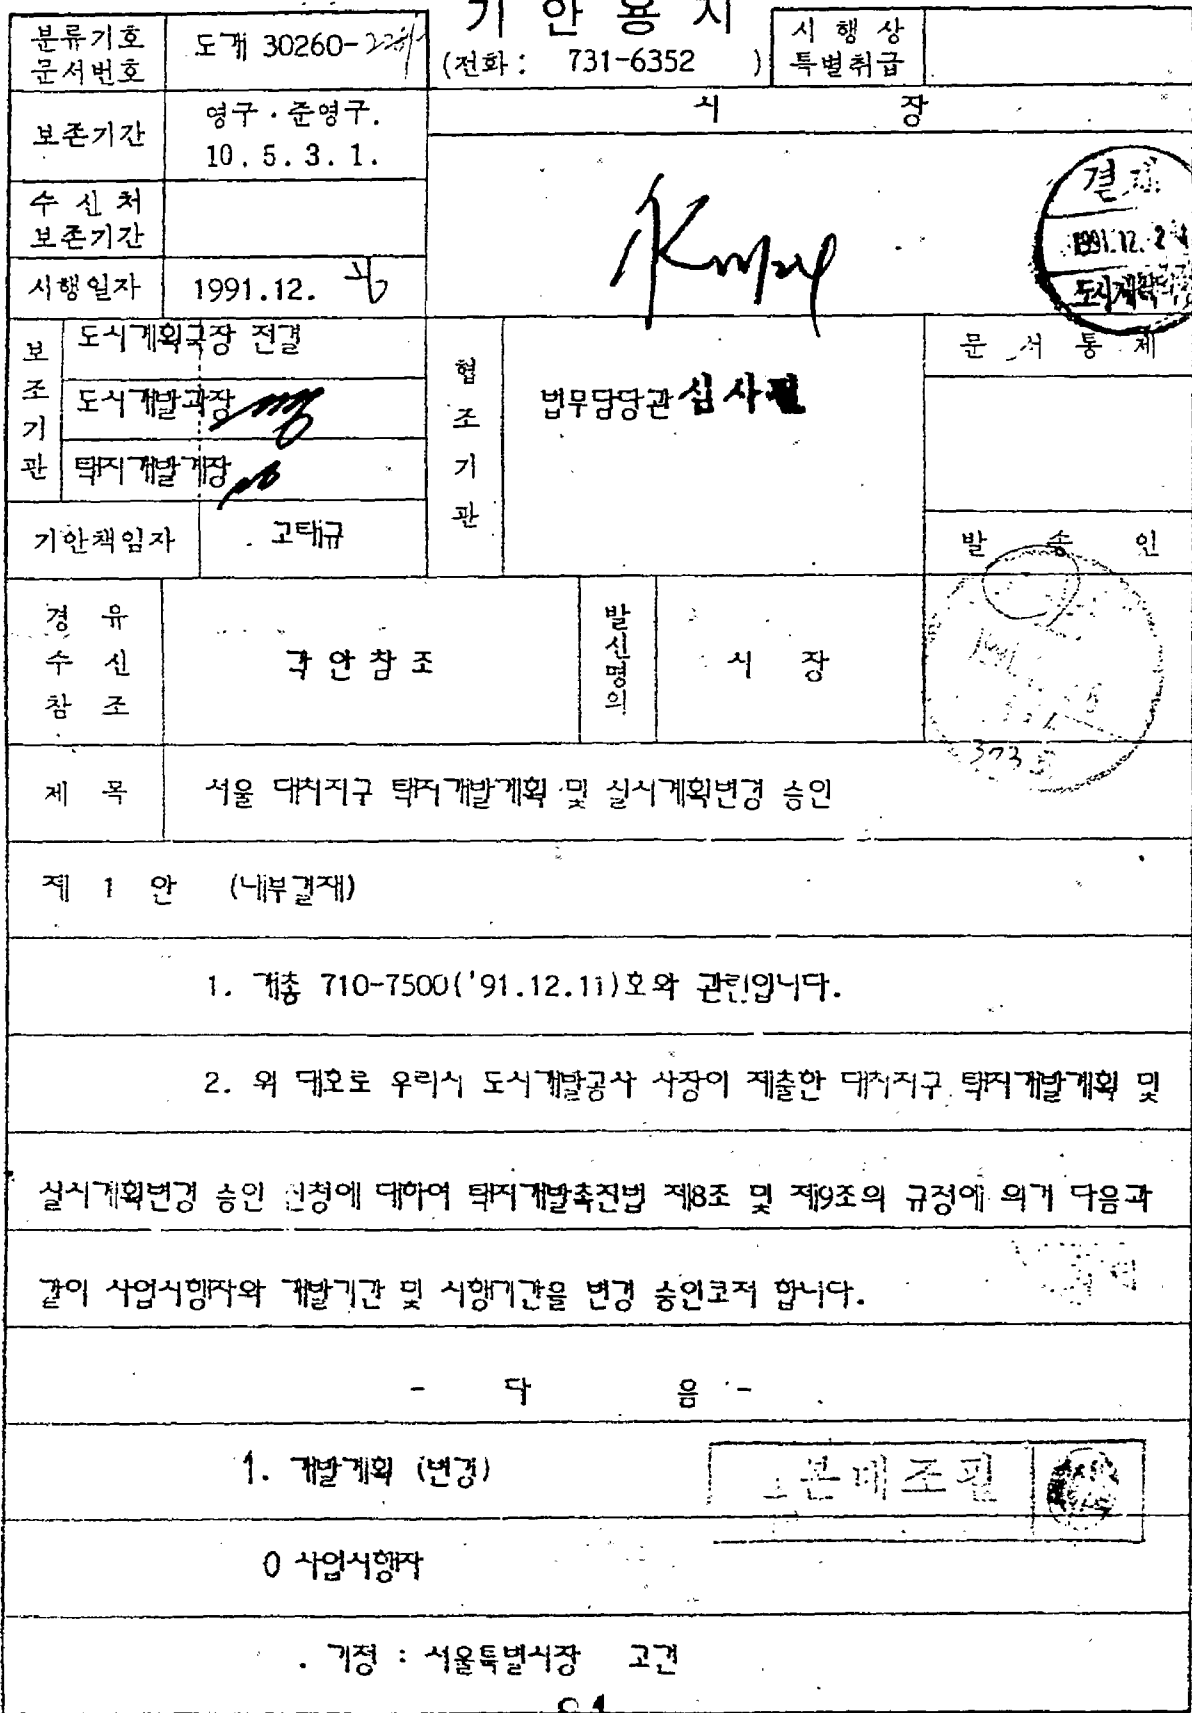 기 안 용 지
분류기호
문서번호
도개 30260-
(전화 : 731-6352 )
시 행 상
특별취급
보존기간
영구 · 준영구.
10. 5. 3. 1.
시 장
수 신 처
보존기간
시행일자
1991.12.
결재
1991.12. 2
도시계획
보조기관
도시계획국장 전결
도시개발과장
택지개발계장
기안책임자
고태규
협조기관
법무담당관 심사필
문 서 통 제
발 송 인
경 유
수 신
참 조
각 안 참 조
발신명의
시 장
373
제 목
서울 대치지구 택지개발계획 및 실시계획변경 승인
제 1 안 (내부결재)
1. 개총 710-7500('91.12.11)호와 관련입니다.
2. 위 대호로 우리시 도시개발공사 사장이 제출한 대치지구 택지개발계획 및
실시계획변경 승인 신청에 대하여 택지개발촉진법 제8조 및 제9조의 규정에 의거 다음과
같이 사업시행자와 개발기간 및 시행기간을 변경 승인코저 합니다.
- 다 음 -
1. 개발계획 (변경)
본대조필
0 사업시행자
. 기정 : 서울특별시장 고건